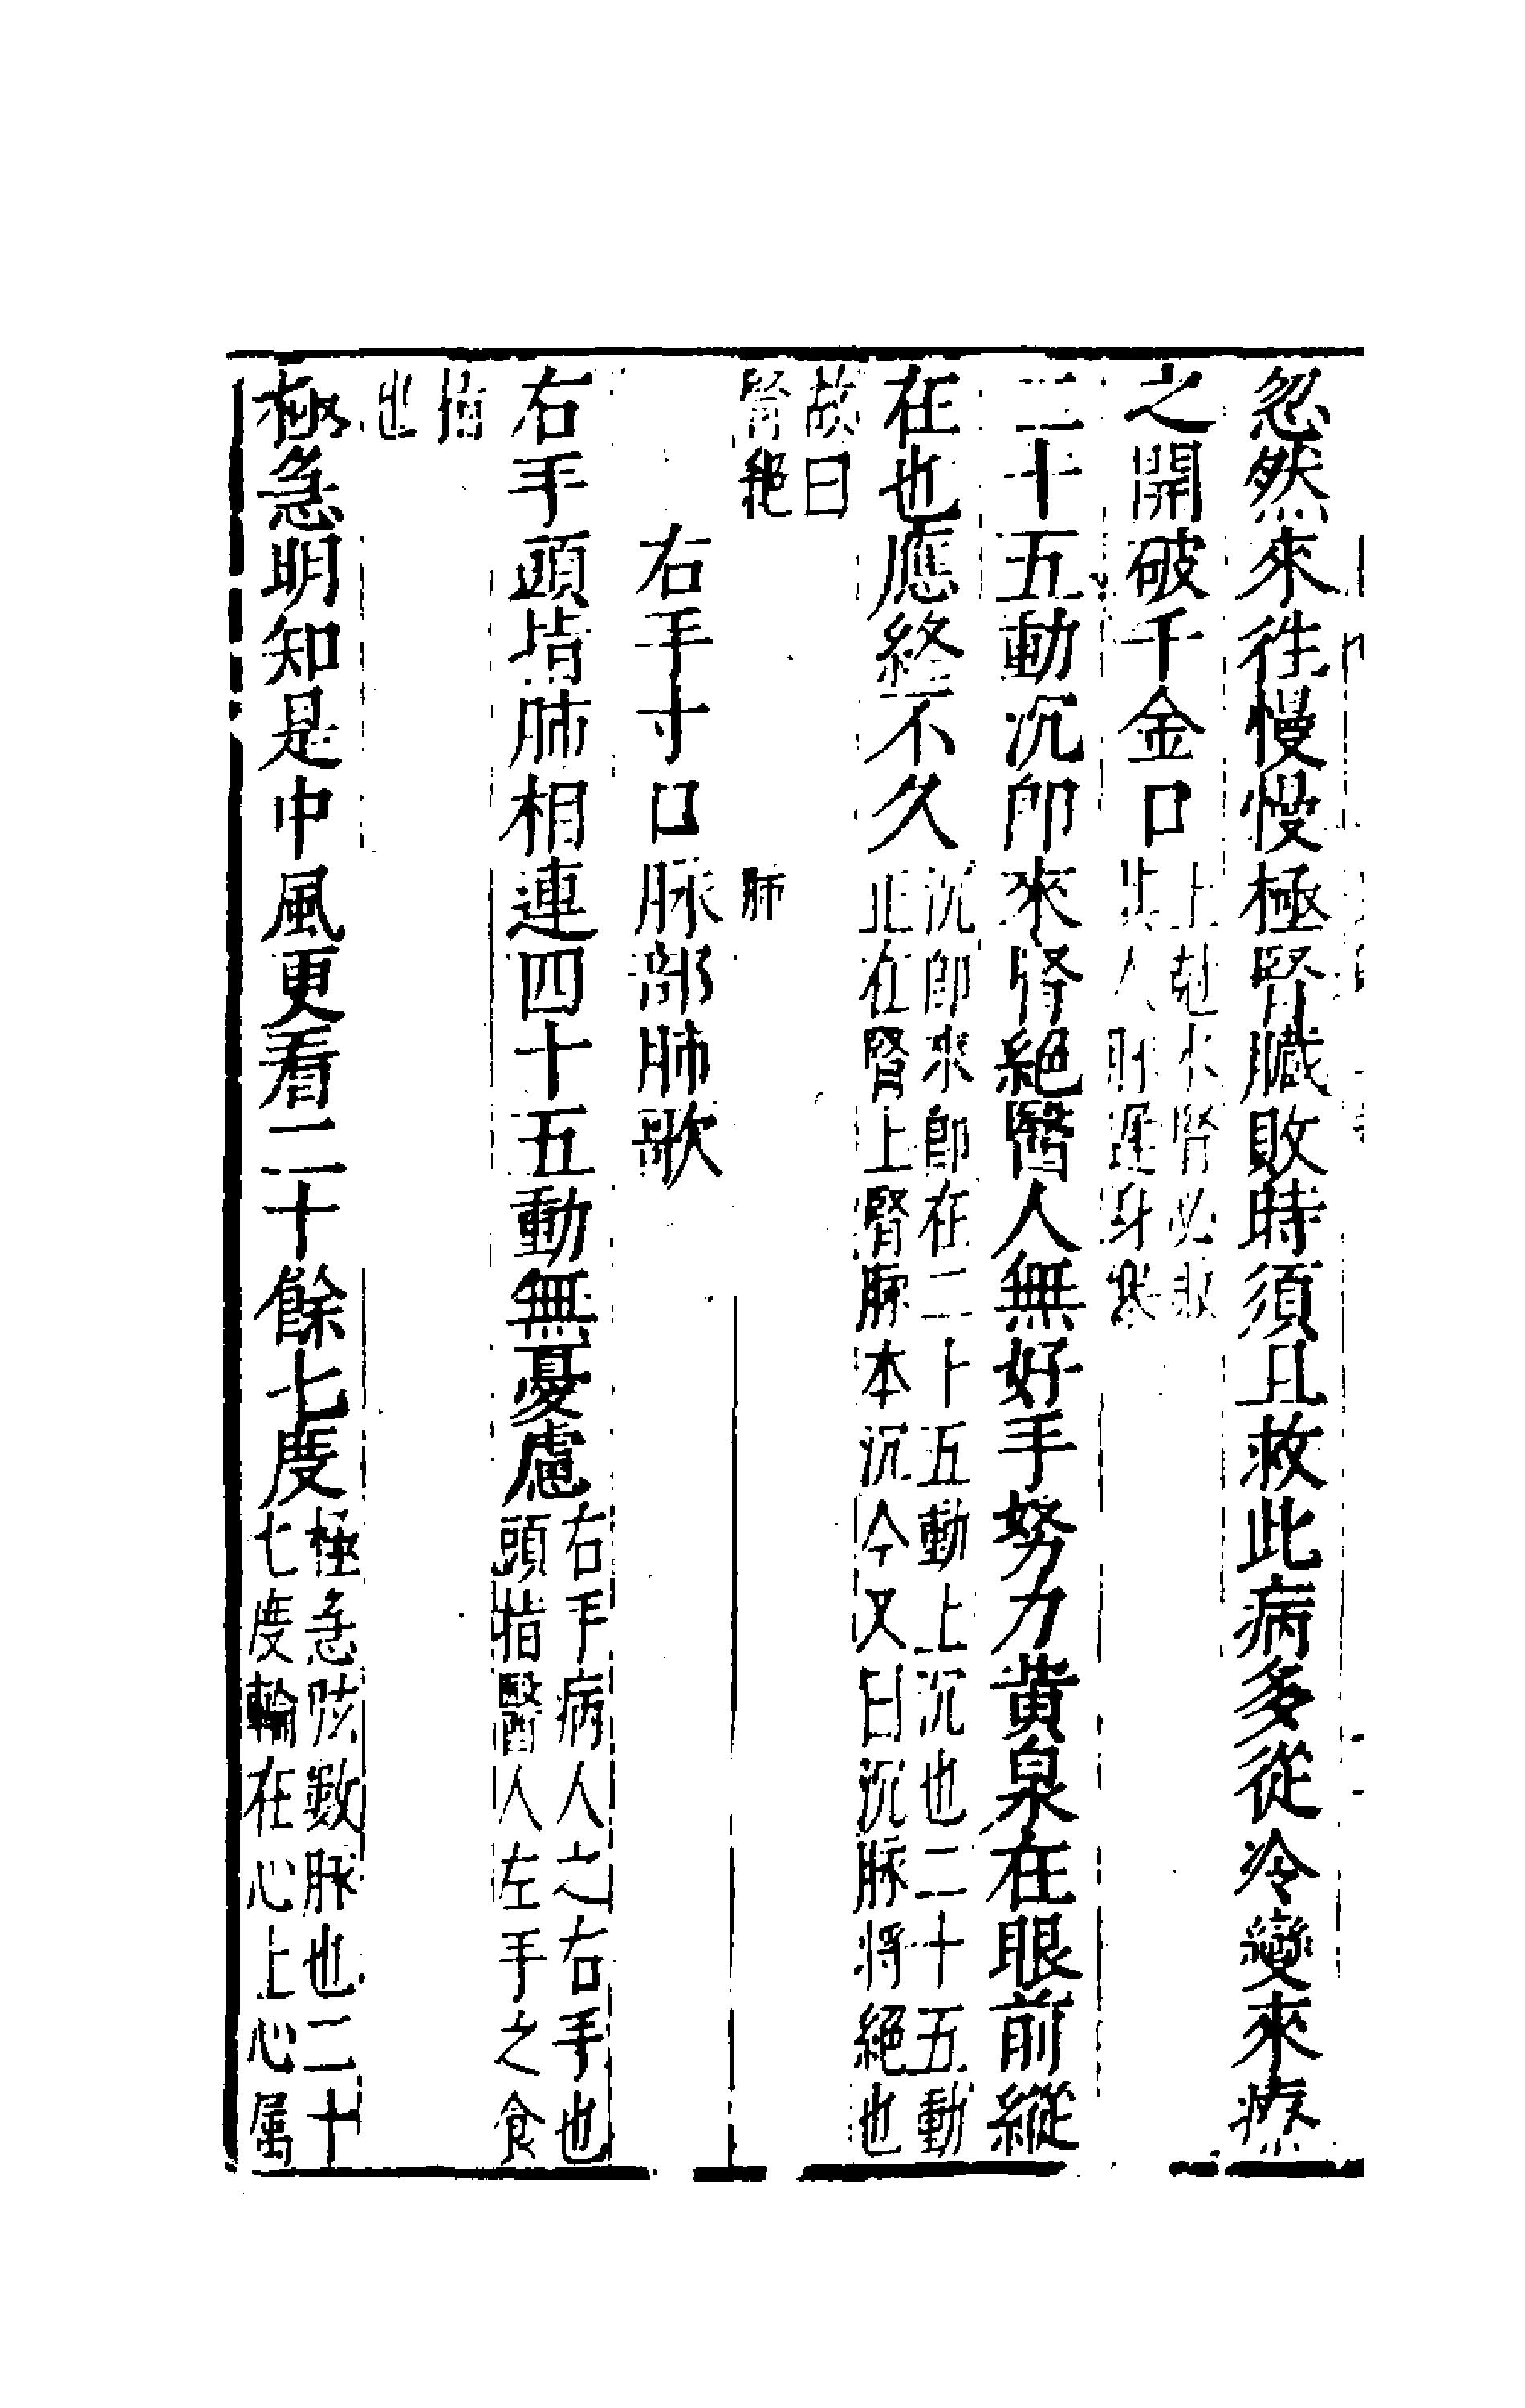 忽然來往慢慢極腎臟敗時須且救此病多從冷變來療
之開破千金口土尅水腎必敗
其人脚遲身寒
二十五動沉即來腎絕醫人無好手努力黃泉在眼前縱
在也應終不久沉即來即在二十五動上沉也二十五動
止在腎上腎脉本沉今又曰沉脉將絕也
故曰
腎絕
肺
右手寸口脉部肺歌
右手頭指肺相連四十五動無憂慮右手病人之右手也
頭指醫人左手之食
指
也
極急明知是中風更看二十餘七度極急弦數脉也二十
七度輪在心上心属